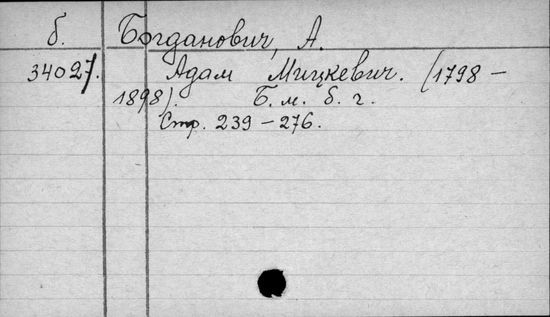 б. Богданович, А.
34027. Адам Мицкевич. (1798 –
1898). Б. м. б. г.
Стр. 239 – 276.